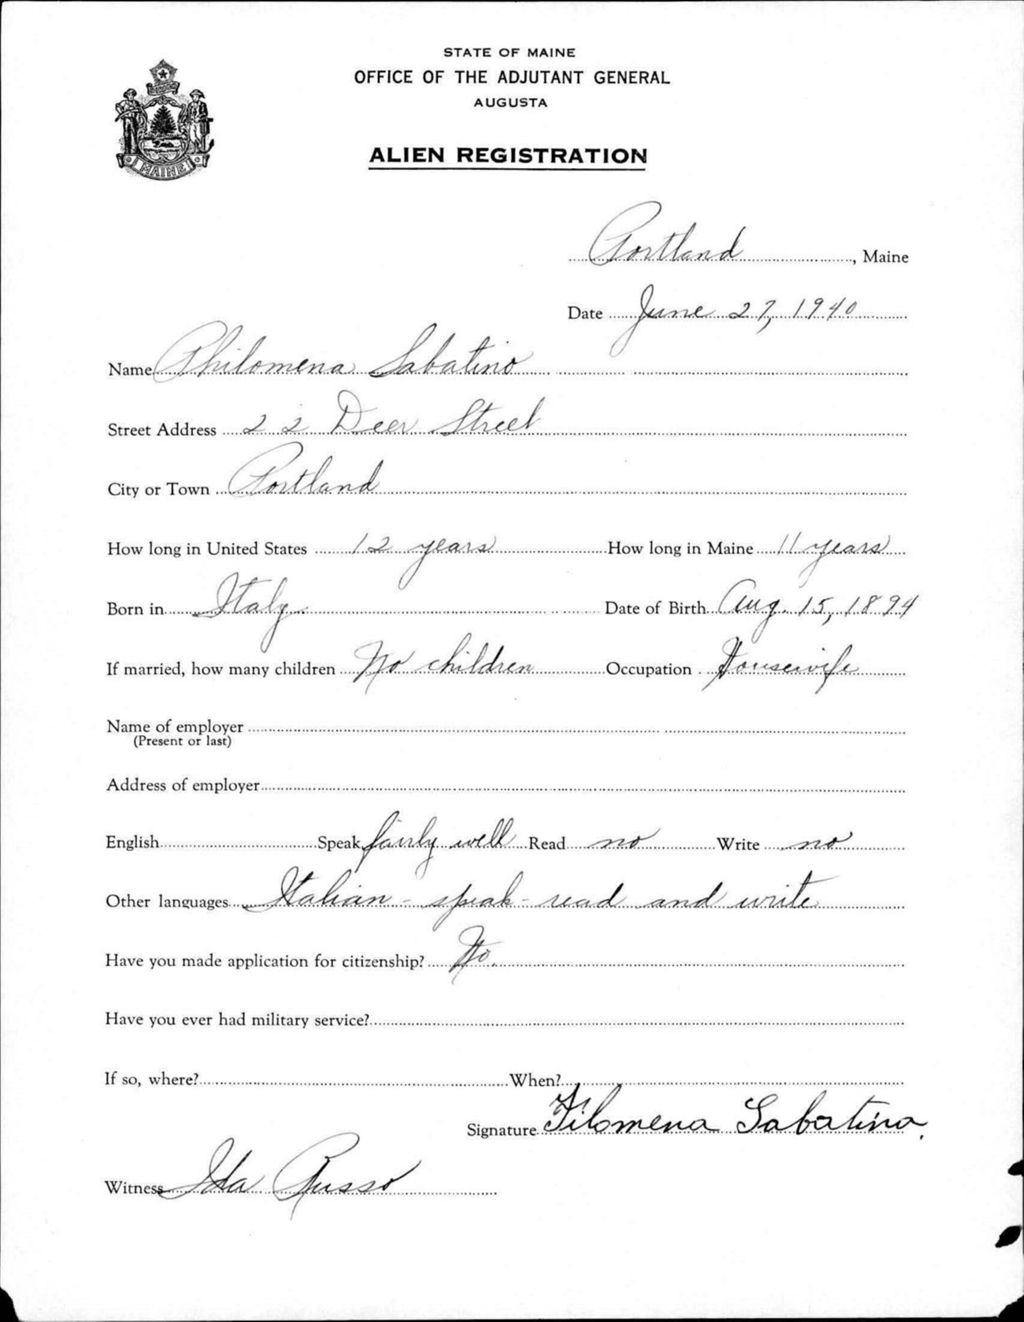 STATE OF MAINE
OFFICE OF THE ADJUTANT GENERAL
AUGUSTA
ALIEN REGISTRATION
MAINE
Portland, Maine
Date June 27, 1940
Name Philomena Sabatino
Street Address 22 Deer Street
City or Town Portland
How long in United States 12 years How long in Maine 11 years
Born in Italy. Date of Birth Aug. 15, 1894
If married, how many children No children Occupation Housewife
Name of employer
(Present or last)
Address of employer
English Speak fairly well Read no Write no
Other languages Italian - speak - read and write
Have you made application for citizenship? No.
Have you ever had military service?
If so, where? When?
Signature Filomena Sabatino.
Witness Ida Russo